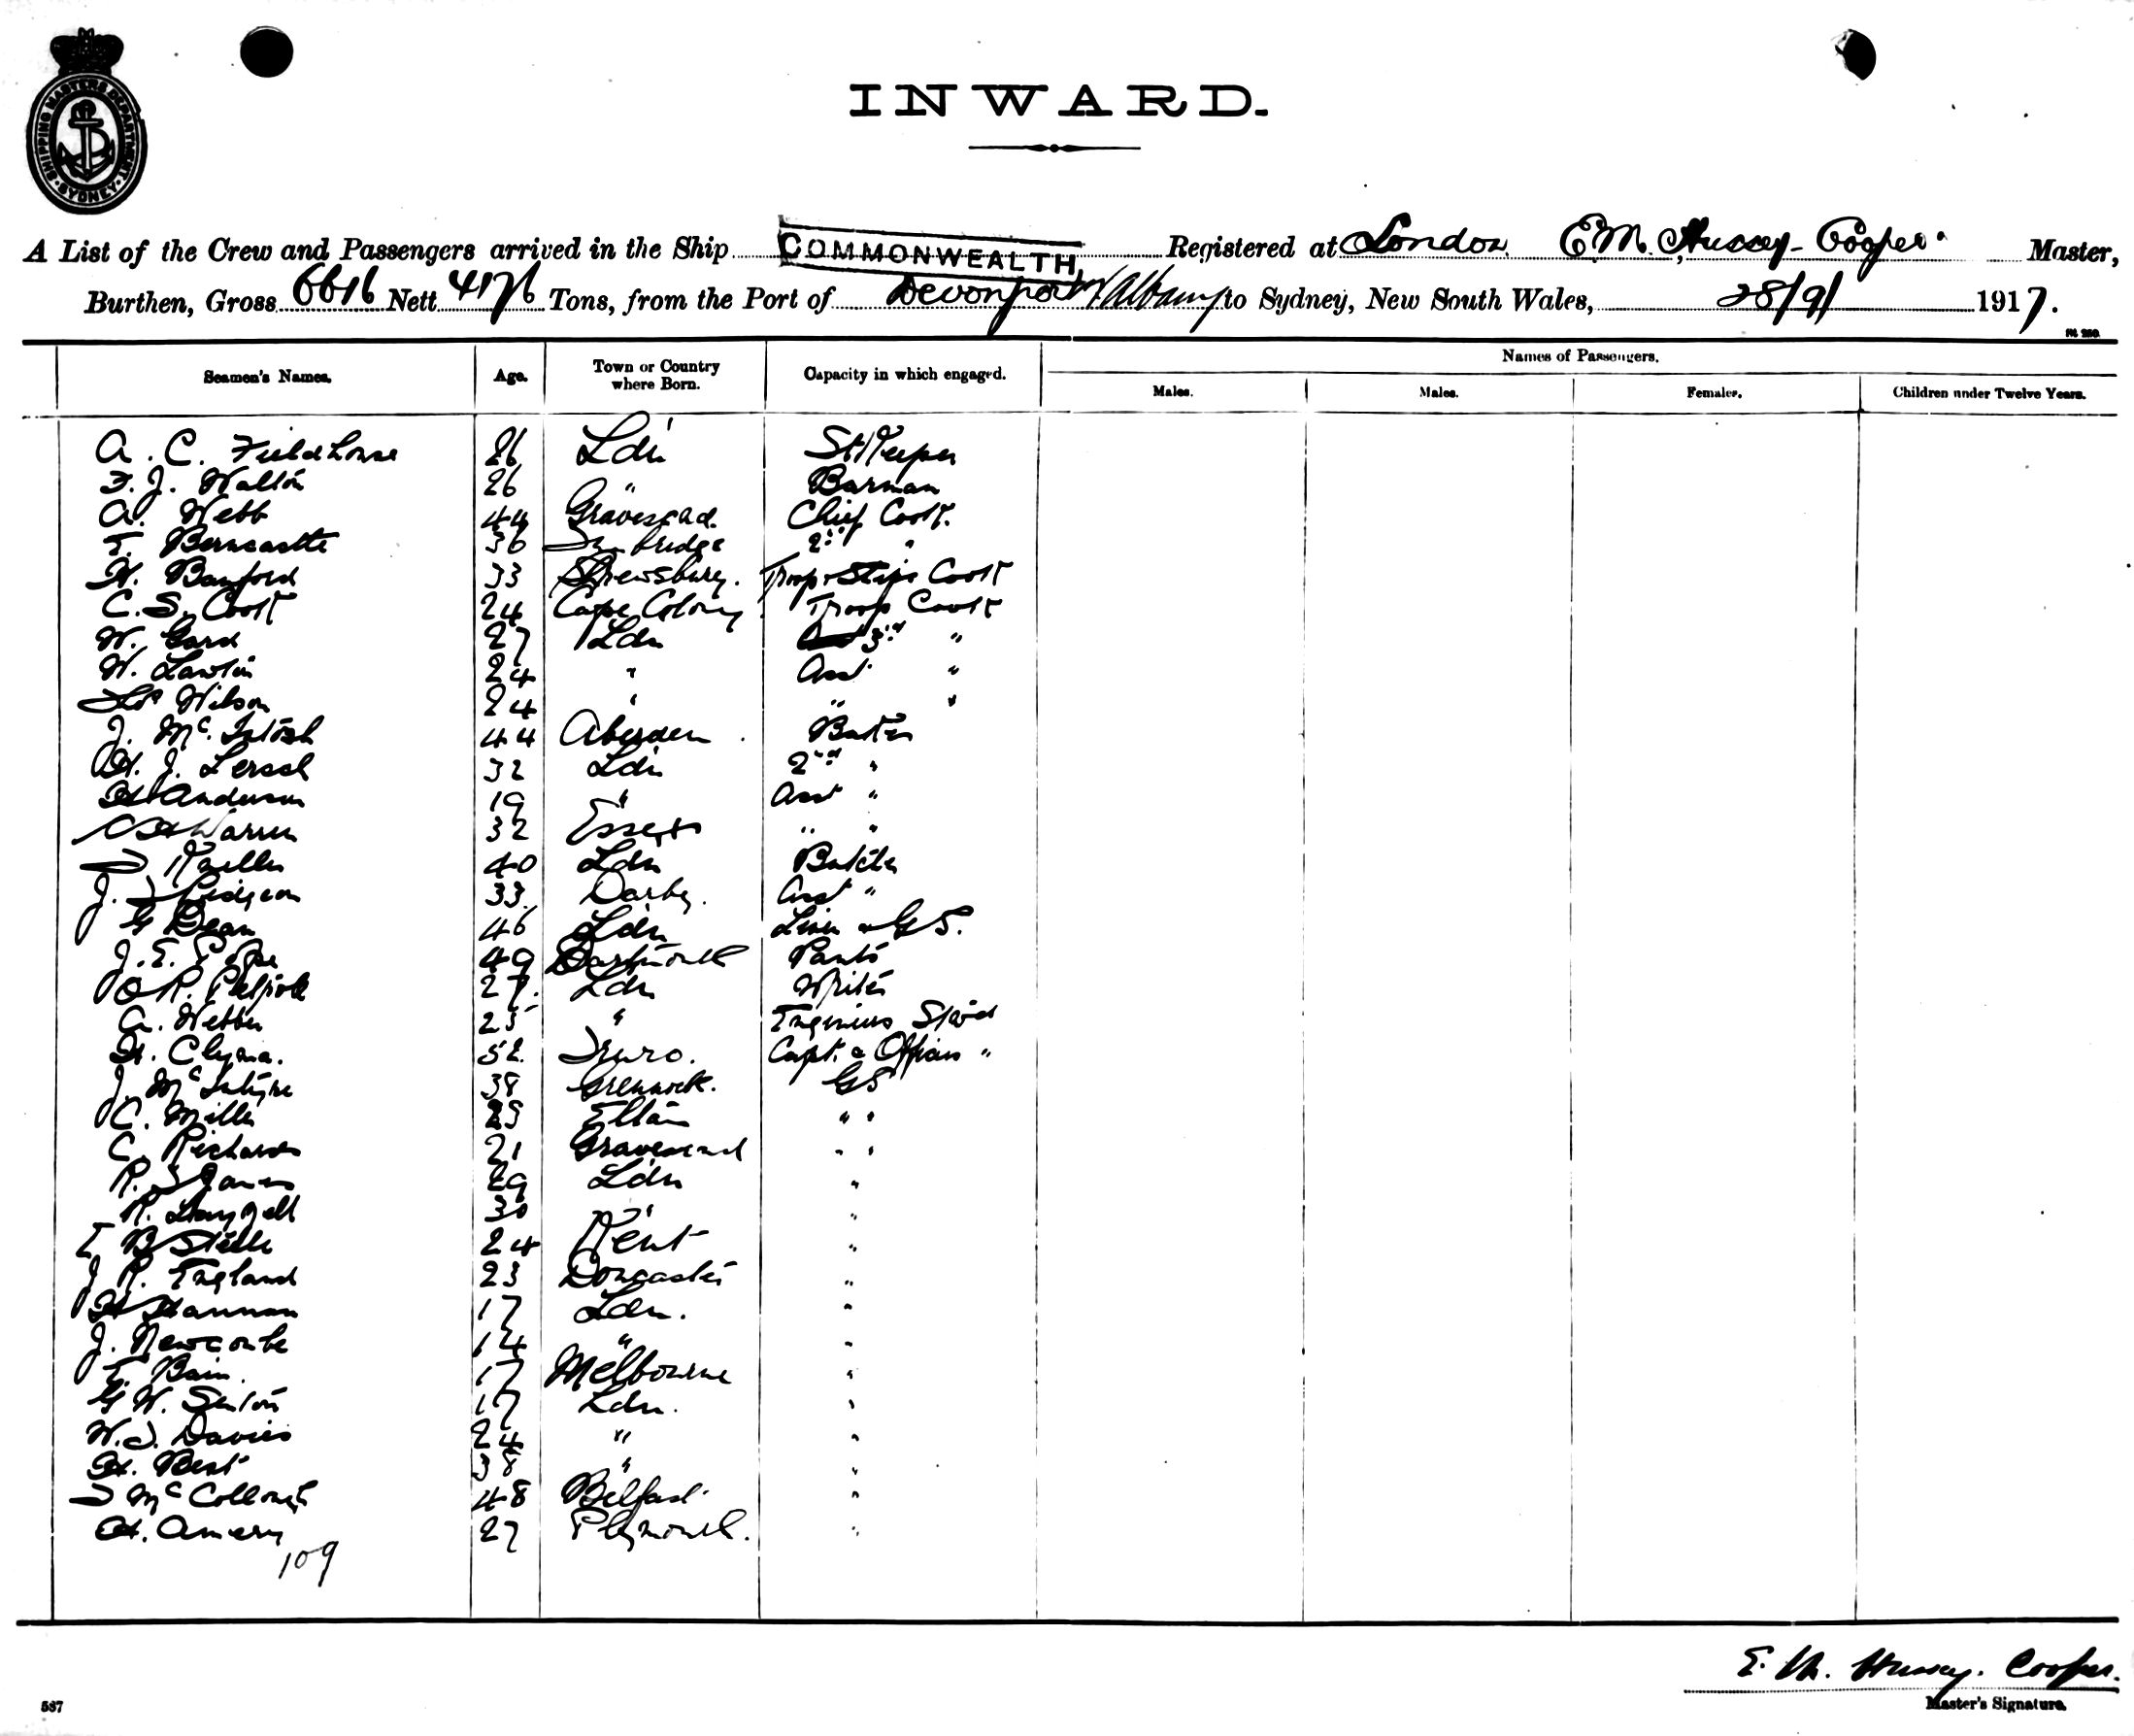 SHIPPING MASTERS DEPARTMENT
SYDNEY
INWARD.
A List of the Crew and Passengers arrived in the Ship COMMONWEALTH, Registered at London E.M. Hussey-Cooper Master,
Burthen, Gross 6616 Nett 4176 Tons, from the Port of Devonport / Albany to Sydney, New South Wales, 28/9/ 1917.
Names of Passengers.
Seamen's Names. Age. Town or Country where Born. Capacity in which engaged. Males. Males. Females. Children under Twelve Years.
A. C. Fieldhouse 26 Ldn St/Keeper
F. J. Walton 26 " Barman
A. Webb 44 Gravesend. Chief Cook.
T. Berncastle 36 2nd "
H. Banford 33 Shrewsbury. Troop & Ships Cook
C. S. Cook 24 Cape Colony Troop Cook
W. Gard 27 Ldn 3rd "
W. Lawton 24 " Asst "
Wilson 24 " " "
J. McIntosh 44 Aberdeen Baker
H. J. Lersch 32 Ldn 2nd "
H Anderson 19 " Asst "
Warren 32 Essex " "
40 Ldn Butcher
J. Pidgeon 33 Darby. Asst "
G Dean 46 Ldn Linen & GS.
J. E. Pope 49 Dartmouth
R. 27. Ldn Writer
A. Webber 25 " Engineers Stwd
H. Clyma. 52 Truro. Capt. & Officers "
J. McIntyre 38 Greenock. GS
C. Miller 25 " "
C. Richards 21 Gravesend " "
R. 29 Ldn "
R. 30 " "
B Steele 24 Kent "
J R. England 23 Doncaster "
H Hannan 17 Ldn. "
J. Newcombe 14 " "
T. Bain. 17 Melbourne "
G W. Senton 17 Ldn. "
W. J. Davies 24 " "
H. Best 38 " "
48 Belfast "
H. Amery 27 Plymouth. "
109
E. M. Hussey. Cooper.
Master's Signature.
537